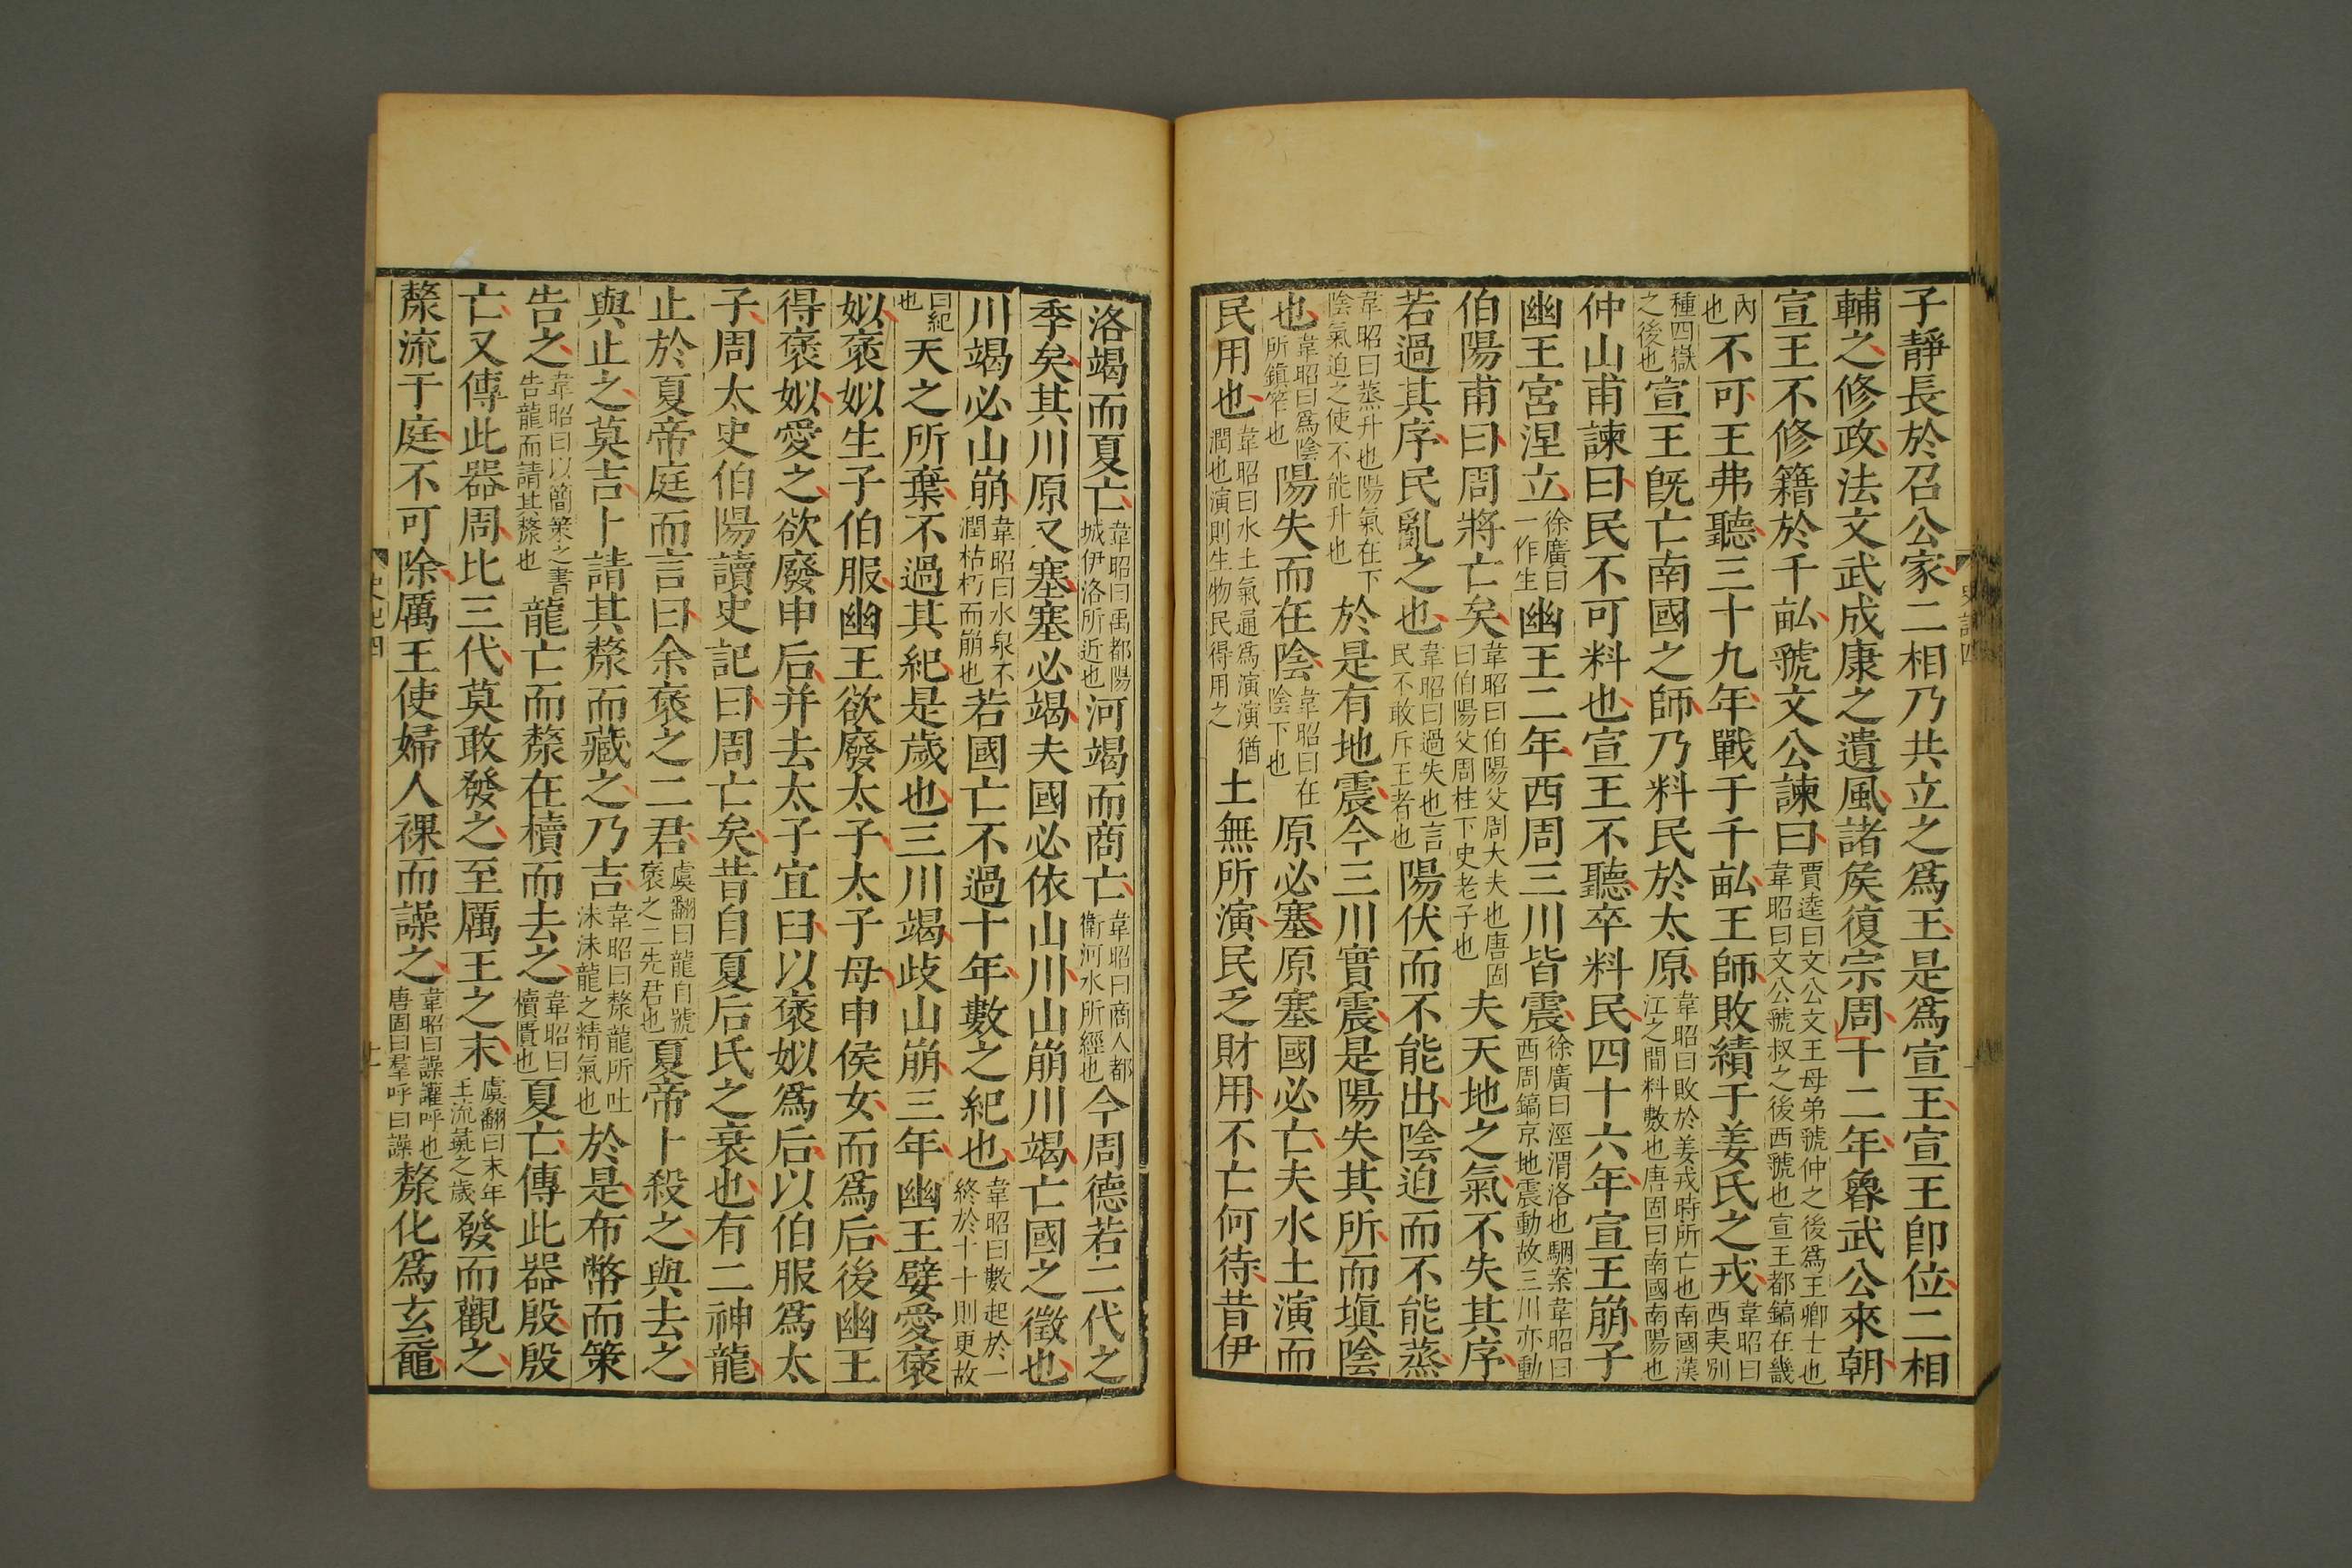 子靜長於召公家二相乃共立之爲王是爲宣王宣王卽位二相
輔之修政法文武成康之遺風諸矦復宗周十二年魯武公來朝
宣王不修籍於千畆虢文公諫曰賈逵曰文公文王母弟虢仲之後爲王卿士也韋昭曰文公虢叔之後西虢也宣王都鎬在畿
內也不可王弗聽三十九年戰于千畆王師敗績于姜氏之戎韋昭曰西夷別
種四嶽之後也宣王旣亡南國之師乃料民於太原韋昭曰敗於姜戎時所亡也南國漢江之間料數也唐固曰南國南陽也
仲山甫諫曰民不可料也宣王不聽卒料民四十六年宣王崩子
幽王宮涅立徐廣曰一作生幽王二年西周三川皆震徐廣曰涇渭洛也駰案韋昭曰西周鎬京地震動故三川亦動
伯陽甫曰周將亡矣韋昭曰伯陽父周大夫也唐固曰伯陽父周柱下史老子也夫天地之氣不失其序
若過其序民亂之也韋昭曰過失也言民不敢斥王者也陽伏而不能出陰迫而不能蒸
韋昭曰蒸升也陽氣在下陰氣迫之使不能升也於是有地震今三川實震是陽失其所而塡陰
也韋昭曰爲陰所鎮笮也陽失而在陰韋昭曰在陰下也原必塞原塞國必亡夫水土演而
民用也韋昭曰水土氣通爲演演猶潤也演則生物民得用之土無所演民乏財用不亡何待昔伊
洛竭而夏亡韋昭曰禹都陽城伊洛所近也河竭而商亡韋昭曰商人都衛河水所經也今周德若二代之
季矣其川原又塞塞必竭夫國必依山川山崩川竭亡國之徵也
川竭必山崩韋昭曰水泉不潤枯朽而崩也若國亡不過十年數之紀也韋昭曰數起於一終於十十則更故
曰紀也天之所棄不過其紀是歲也三川竭歧山崩三年幽王嬖愛褒
姒褒姒生子伯服幽王欲廢太子太子母申侯女而爲后後幽王
得褒姒愛之欲廢申后并去太子宜臼以褒姒爲后以伯服爲太
子周太史伯陽讀史記曰周亡矣昔自夏后氏之衰也有二神龍
止於夏帝庭而言曰余褒之二君虞翻曰龍自號褒之二先君也夏帝卜殺之與去之
與止之莫吉卜請其漦而藏之乃吉韋昭曰漦龍所吐沫沫龍之精氣也於是布幣而策
告之韋昭曰以簡策之書告龍而請其漦也龍亡而漦在櫝而去之韋昭曰櫝匱也夏亡傳此器殷殷
亡又傳此器周比三代莫敢發之至厲王之末虞翻曰末年王流彘之歲發而觀之
漦流于庭不可除厲王使婦人裸而譟之韋昭曰譟讙呼也唐固曰羣呼曰譟漦化爲玄黿
史記四